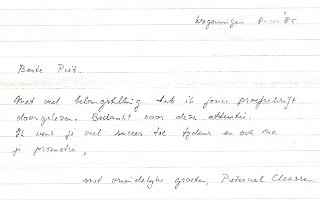 Wageningen 8-11-'85
Beste Piet.
Met veel belangstelling heb ik jouw proefschrift
doorgelezen. Bedankt voor deze attentie.
Ik wens je veel succes toe tijdens en ook na
je promotie,
met vriendelijke groeten, Pieternel Claassen